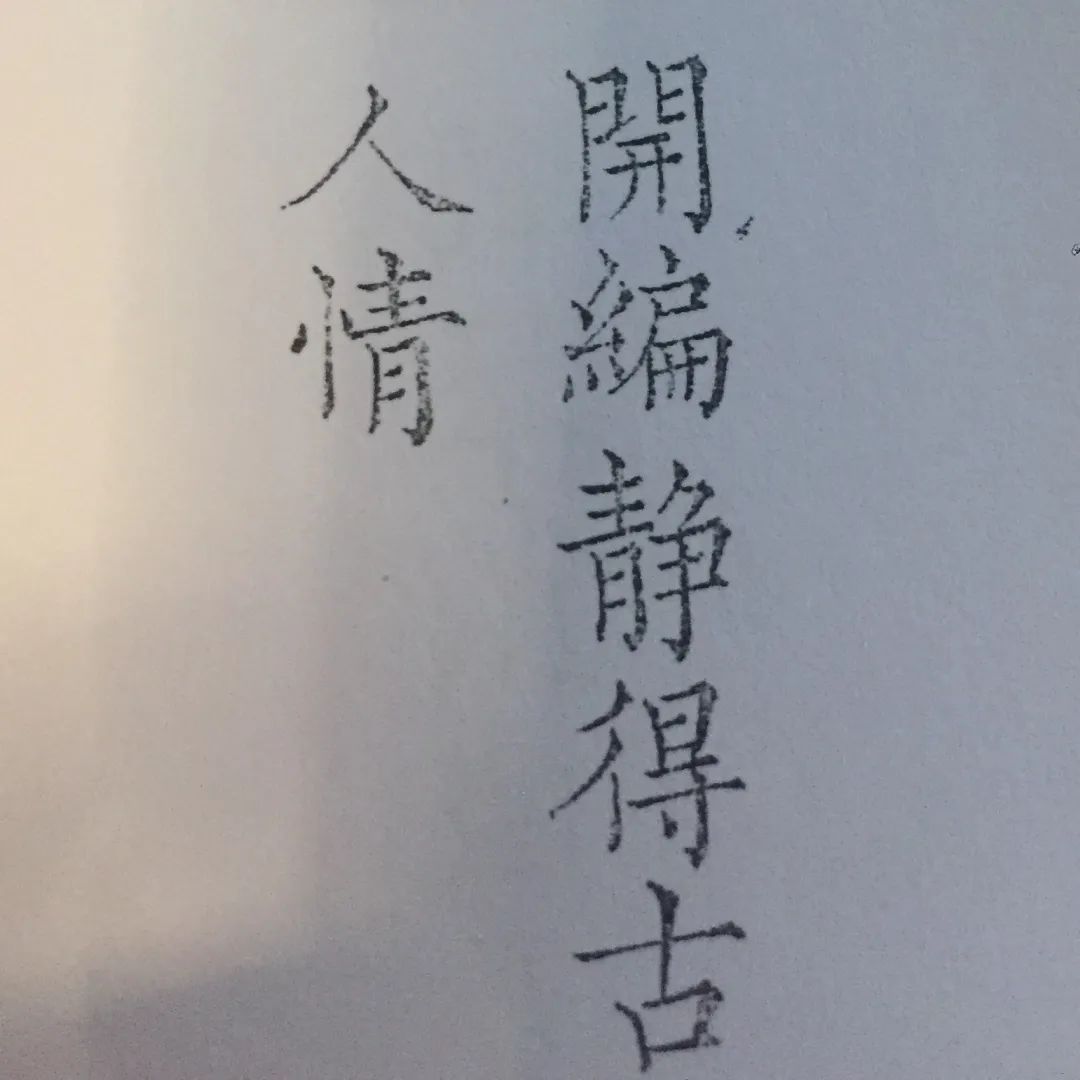 開編静得古
人情